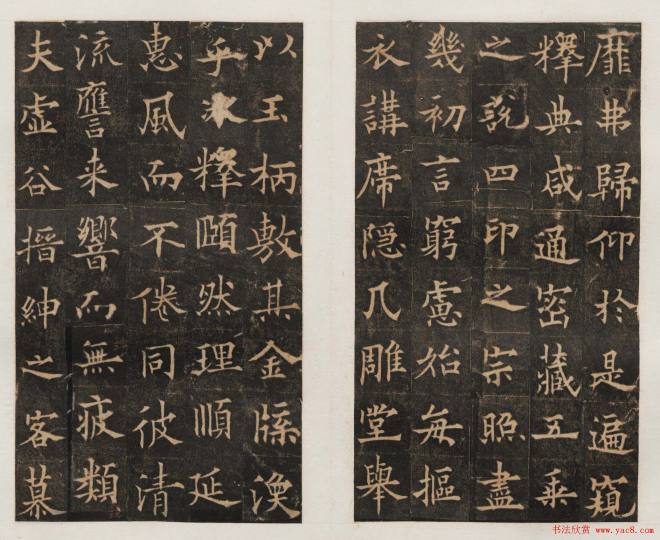 靡弗歸仰於是遍窺
釋典咸通密藏五乘
之說四印之宗照盡
幾初言窮慮始每摳
衣講席隐几雕堂舉
以玉柄敷其金牒渙
乎冰釋頤然理順延
惠風而不倦同彼清
流譍来響而無疲類
夫虛谷搢紳之客慕
书法欣赏 www.yac8.com